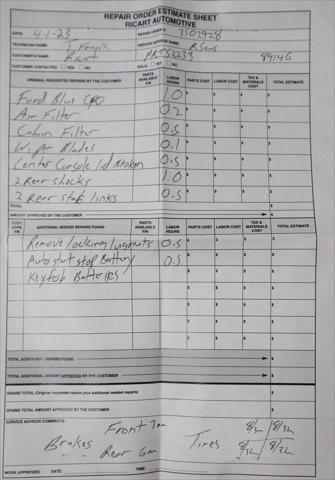 REPAIR ORDER ESTIMATE SHEET
RICART AUTOMOTIVE
DATE: 4-1-23 REPAIR ORDER #: 7502928
TECHNICIAN NAME: T. Frank SERVICE ADVISOR NAME: R Sens
CUSTOMER'S NAME: Ricart PRT52233 89146
CUSTOMER CONTACTED: YES NO SOLD: YES NO
ORIGINAL REQUESTED REPAIRS BY THE CUSTOMER PARTS AVAILABLE Y/N LABOR HOURS PARTS COST LABOR COST TAX & MATERIALS COST TOTAL ESTIMATE
Ford Blue CPO 1.0 $ $ $ $
Air Filter 0.2 $ $ $ $
Cabin Filter 0.5 $ $ $ $
Wiper Blades 0.1 $ $ $ $
Center Console lid Broken 0.5 $ $ $ $
2 Rear shocks 1.0 $ $ $ $
2 Rear stab links 0.5 $ $ $ $
TOTAL $
AMOUNT APPROVED BY THE CUSTOMER $
CUST. APPR. Y/N ADDITIONAL NEEDED REPAIRS FOUND PARTS AVAILABLE Y/N LABOR HOURS PARTS COST LABOR COST TAX & MATERIALS COST TOTAL ESTIMATE
Remove locking lugnuts 0.5 $ $ $ $
Auto start stop Battery 0.5 $ $ $ $
Keyfob Batteries $ $ $ $
TOTAL ADDITIONAL REPAIRS FOUND $
TOTAL ADDITIONAL AMOUNT APPROVED BY THE CUSTOMER $
GRAND TOTAL (Original requested repairs plus additional needed repairs) $
GRAND TOTAL AMOUNT APPROVED BY THE CUSTOMER $
SERVICE ADVISOR COMMENTS:
Front 7mm 8/32 8/32
Brakes Rear 6mm Tires 8/32 8/32
WORK APPROVED: DATE: TIME: